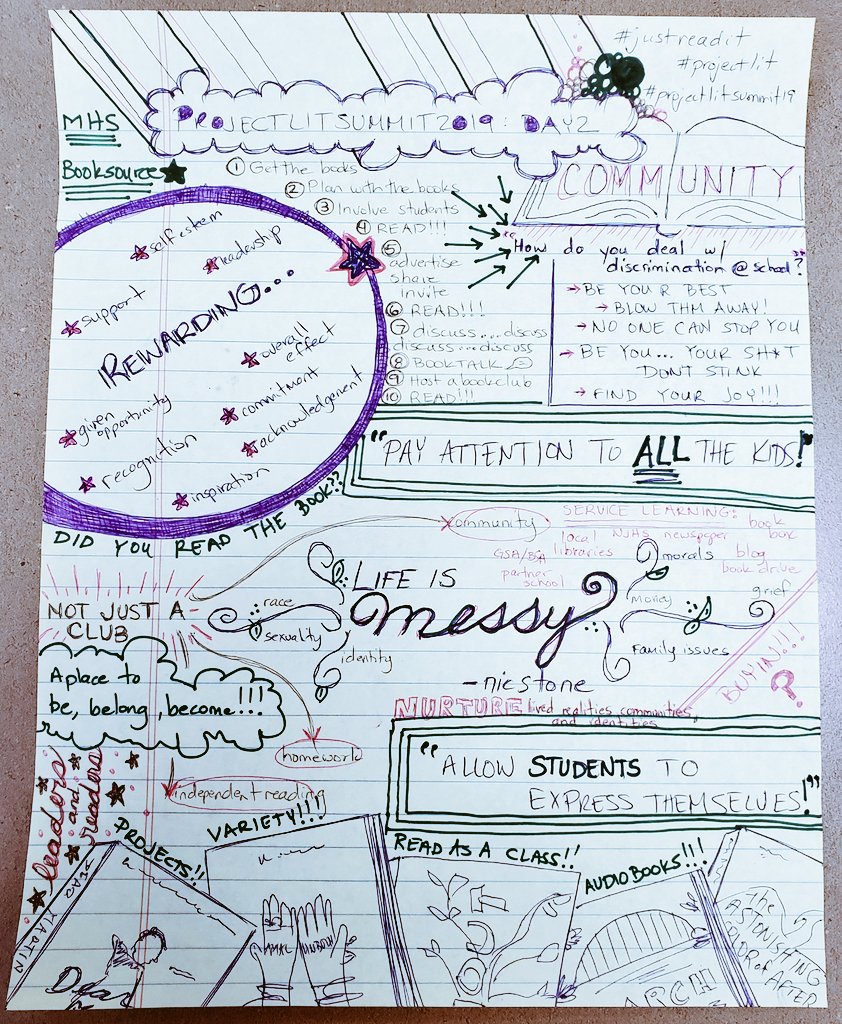 #justreadit
#projectlit
#projectlitsummit19
PROJECTLITSUMMIT2019: DAY2
MHS
Booksource
① Get the books
② Plan with the books
③ Involve students
④ READ!!!
⑤ advertise
share
invite
⑥ READ!!!
⑦ discuss....discuss
discuss...discuss
⑧ BOOKTALK
⑨ Host a bookclub
⑩ READ!!!
COMMUNITY
"How do you deal w/
discrimination @ school?"
→ BE YOUR BEST
→ BLOW THM AWAY!
→ NO ONE CAN STOP YOU
→ BE YOU... YOUR SH*T
DONT STINK
→ FIND YOUR JOY!!!
self esteem
leadership
support
REWARDING...
overall
effect
given
opportunity
commitment
acknowledgement
recognition
inspiration
DID YOU READ THE BOOK??
"PAY ATTENTION TO ALL THE KIDS!"
community
SERVICE LEARNING: book
box
local NJHS newspaper
libraries
GSA/BSA
partner
school
morals
blog
book drive
LIFE IS
messy
-nic stone
race
sexuality
identity
money
grief
Family issues
BUY IN!!!
?
NOT JUST A
CLUB
A place to
be, belong, become!!!
NURTURE lived realities, communities,
and identities
homework
independent reading
"ALLOW STUDENTS TO
EXPRESS THEMSELVES!"
leaders
and
readers
PROJECTS!!
VARIETY!!!
READ AS A CLASS!!
AUDIOBOOKS!!!
DEAR MARTIN
Dear
AMAL
UNBOUND
MARCH
The
ASTONISHING
COLOR of AFTER